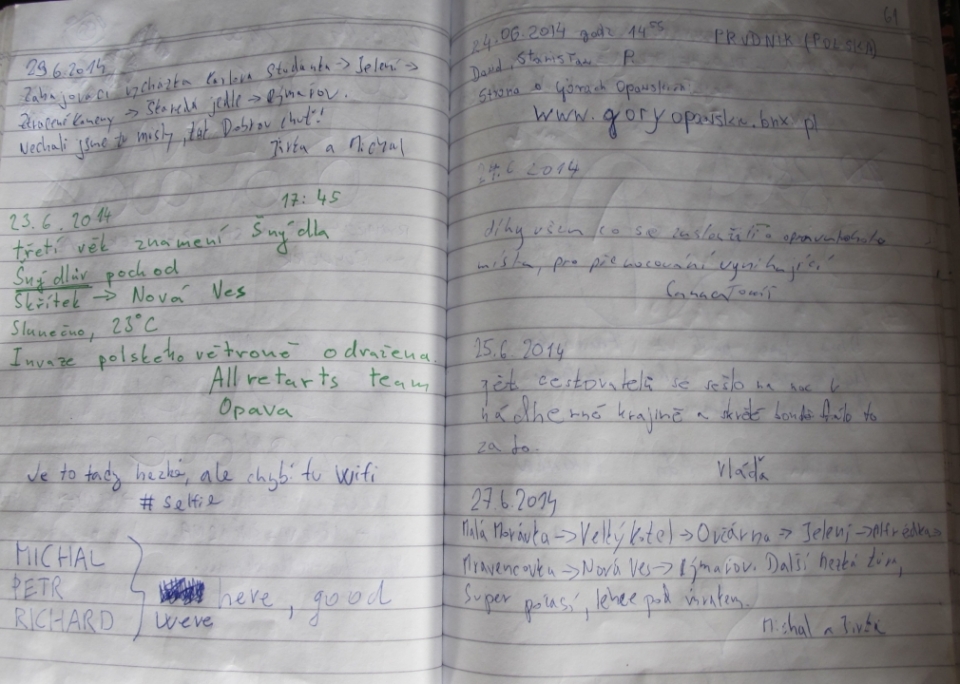 29.6.2014
Zahajovací vycházka Karlova Studánka → Jelení →
Ztracené kameny → Stará jedle → Rýmařov.
Nechali jsme tu mošty, tak Dobrou chuť!
Jirka a Michal
23.6.2014 17:45
třetí věk znamení Šnýdla
Šnýdlův pochod
Skřítek → Nová Ves
Slunečno, 23°C
Invaze polského větroně odražena.
All retarts team
Opava
Je to tady hezké, ale chybí tu Wifi
# selfie
MICHAL
PETR
RICHARD
here, good
were
61
24.06.2014 godz. 14⁵⁵ PRUDNIK (POLSKA)
Dawid, Stanisław P.
Strona o Górach Opawskich
www.goryopawskie.bnx.pl
24.6 2014
díky všem co se zasloužili o
místa, pro přenocování vynikající
25.6.2014
pět cestovatelů se sešlo na noc v
nádherné krajině a stálo to
za to.
Vláďa
27.6.2014
Malá Morávka → Velký Kotel → Ovčárna → Jelení → Alfrédka →
Mravencovka → Nová Ves → Rýmařov. Další hezká túra,
Super počasí, lehce pod mrakem.
Michal a Jirka